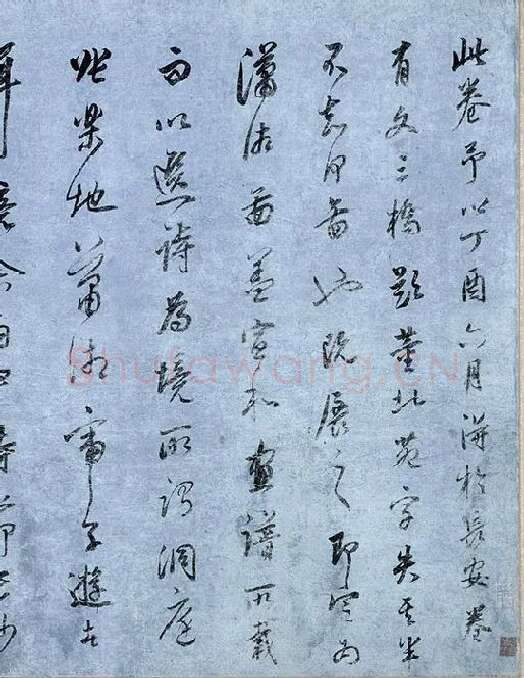 此卷予以丁酉六月得於長安卷
有文三橋題董北苑字失其半
不知何圖也既展之即定為
瀟湘圖蓋宣和畫譜所載
而以選詩為境所謂洞庭
張樂地瀟湘帝子遊者
Shufawang.CN